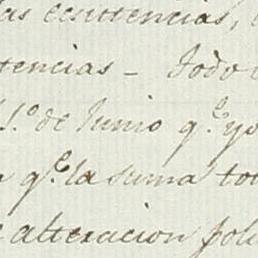 as ecsistencias,
tencias – Todo
1.º de Junio q.e yo
q.e la suma tot
alteracion pol